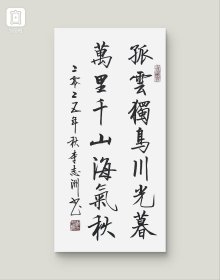 孤雲獨鳥川光暮
萬里千山海氣秋
二零二五年秋李志洲书